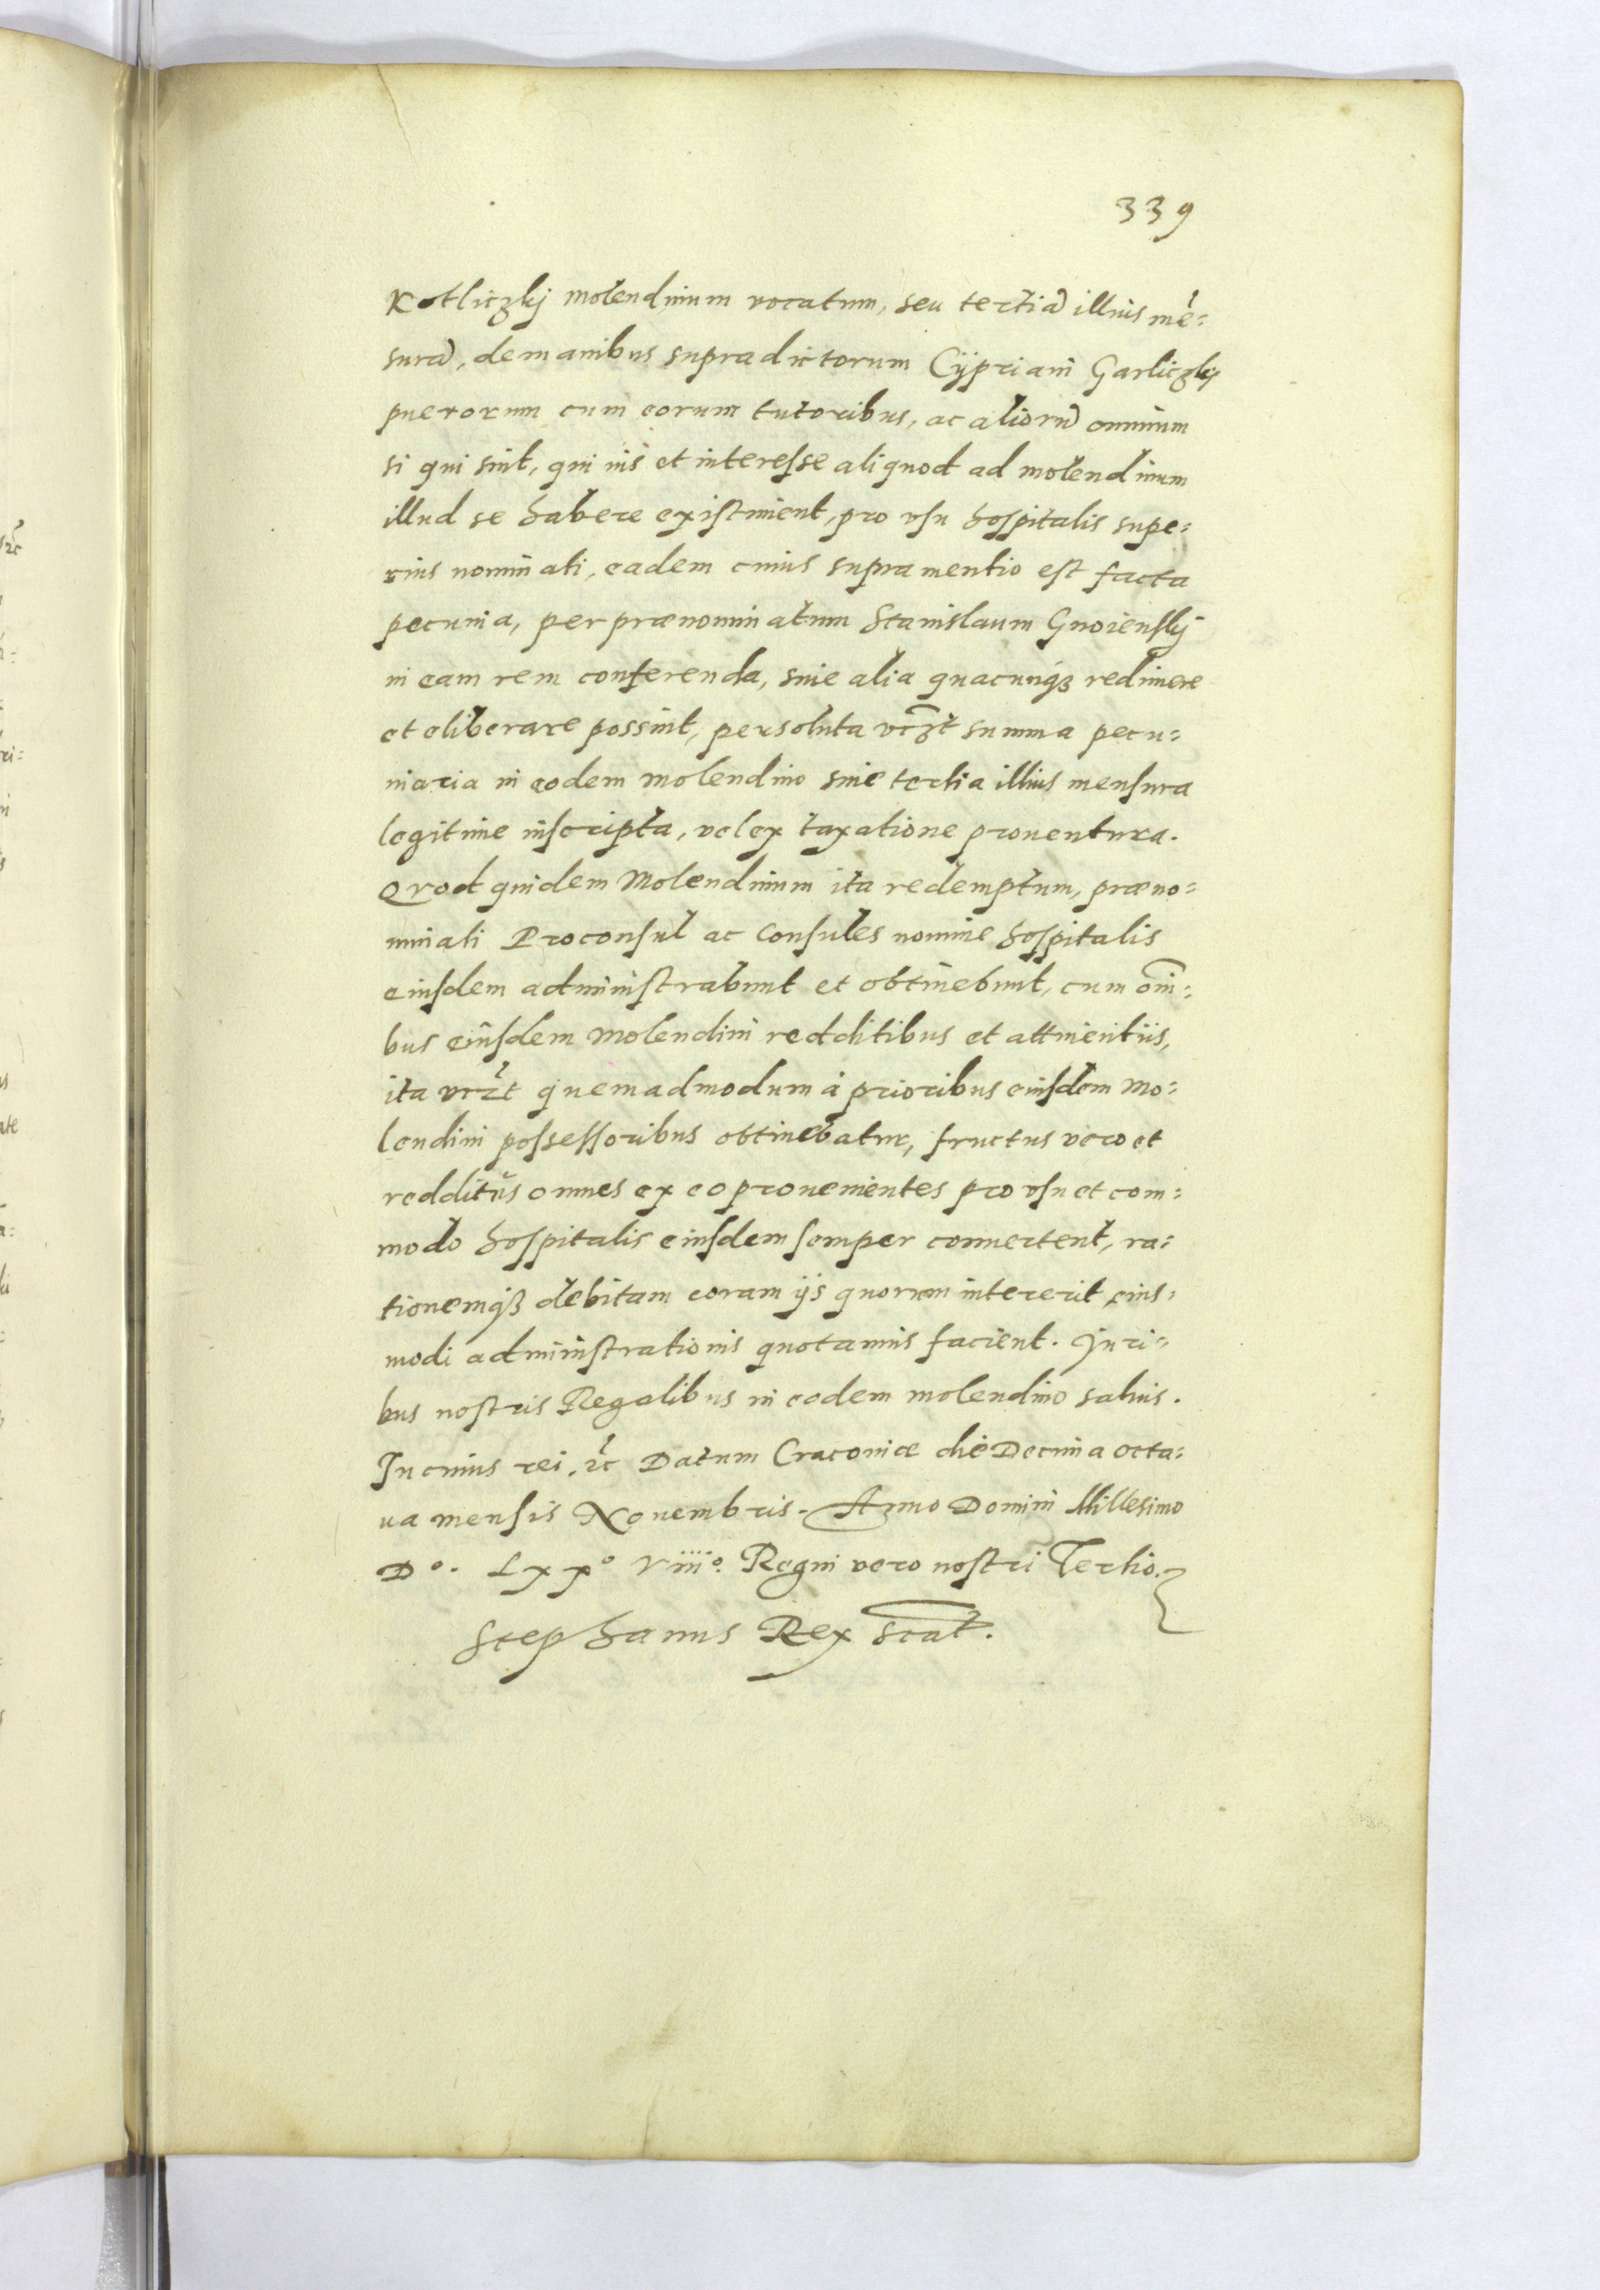 339
Kotliczkj molendinum vocatum, seu tertiã illius mẽ=
surã, de manibus supradictorum Cÿpriani Garliczkÿ
puerorum cum eorum tutoribus, ac aliorũ omnium
si qui sint, qui ius et interesse aliquod ad molendinum
illud se habere existiment, pro vsu hospitalis supe=
rius nominati, eadem cuius supra mentio est facta
pecunia, per prænominatum Stanislaum Gnoienskj
in eam rem conferenda, siue alia quacunqȝ redimere
et eliberare possint, persoluta vcȝt summa pecu=
niaria in eodem molendino siue tertia illius mensura
legitime inscripta, vel ex taxatione prouentura.
Qvod quidem Molendinum ita redemptum, præno=
minati Proconsul ac Consules nomine hospitalis
eiusdem administrabunt et obtinebunt, cum om̃i=
bus eiusdem Molendini redditibus et attinentiis,
ita vczt quemadmodum à prioribus eiusdem Mo=
lendini possessoribus obtinebatur, fructus vero et
redditus omnes ex eo prouenientes pro vsu et com=
modo hospitalis eiusdem semper conuertent, ra=
tionemqȝ debitam coram ijs quorum intererit eius=
modi administrationis quotannis facient. Juri=
bus nostris Regalibus in eodem molendino saluis.
In cuius rei, ꝛc Datum Cracouiæ die Decima octa=
ua mensis Nouembris. Anno Domini Millesimo
D°. Lxx° Viiii°. Regni vero nostri Tertio.
Stephanus Rex scat̃.